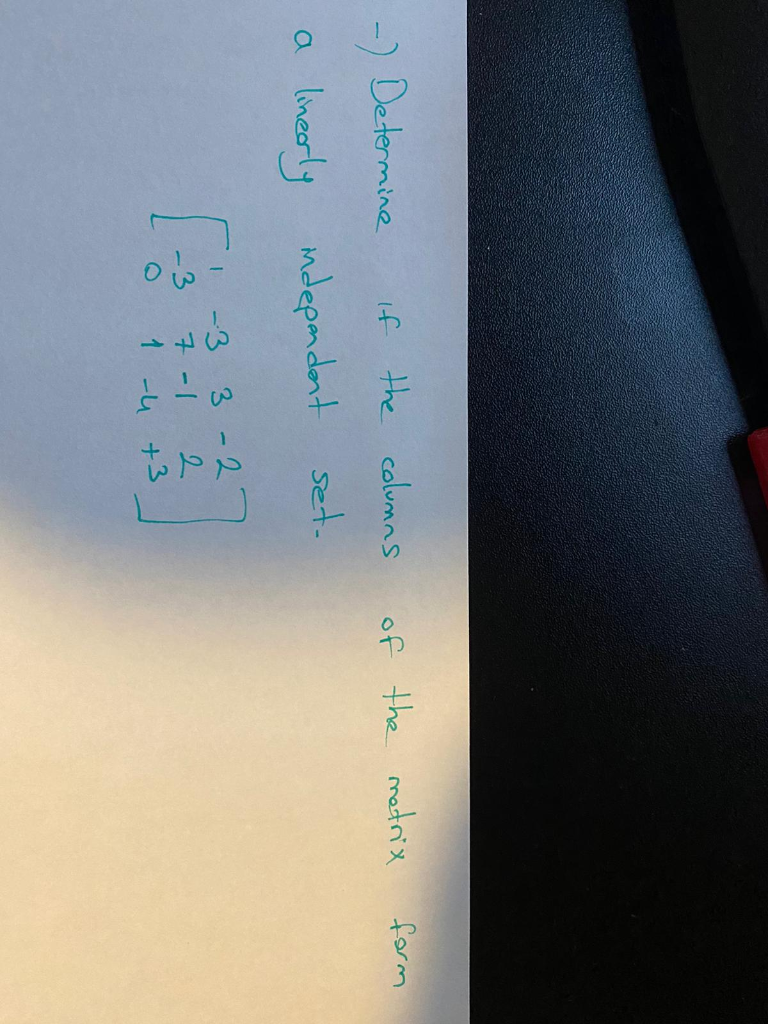 -) Determine if the columns of the matrix form
a linearly independent set.
1 -3 3 -2
-3 7 -1 2
0 1 -4 +3